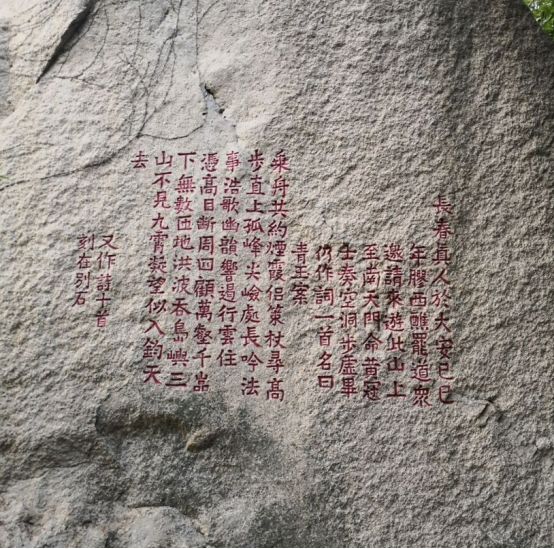 長春真人於大安己巳
年膠西醮罷道衆
邀請來遊此山上
至南天門命黃冠
士奏空洞步虛畢
仍作詞一首名曰
青玉案
乘舟共約煙霞侶策杖尋高
步直上孤峰尖嶮處長吟法
事浩歌幽韻響遏行雲住
憑高目斷周四顧萬壑千巖
下無數匝地洪波吞島嶼三
山不見九霄凝望似入鈞天
去
又作詩十首
刻在別石